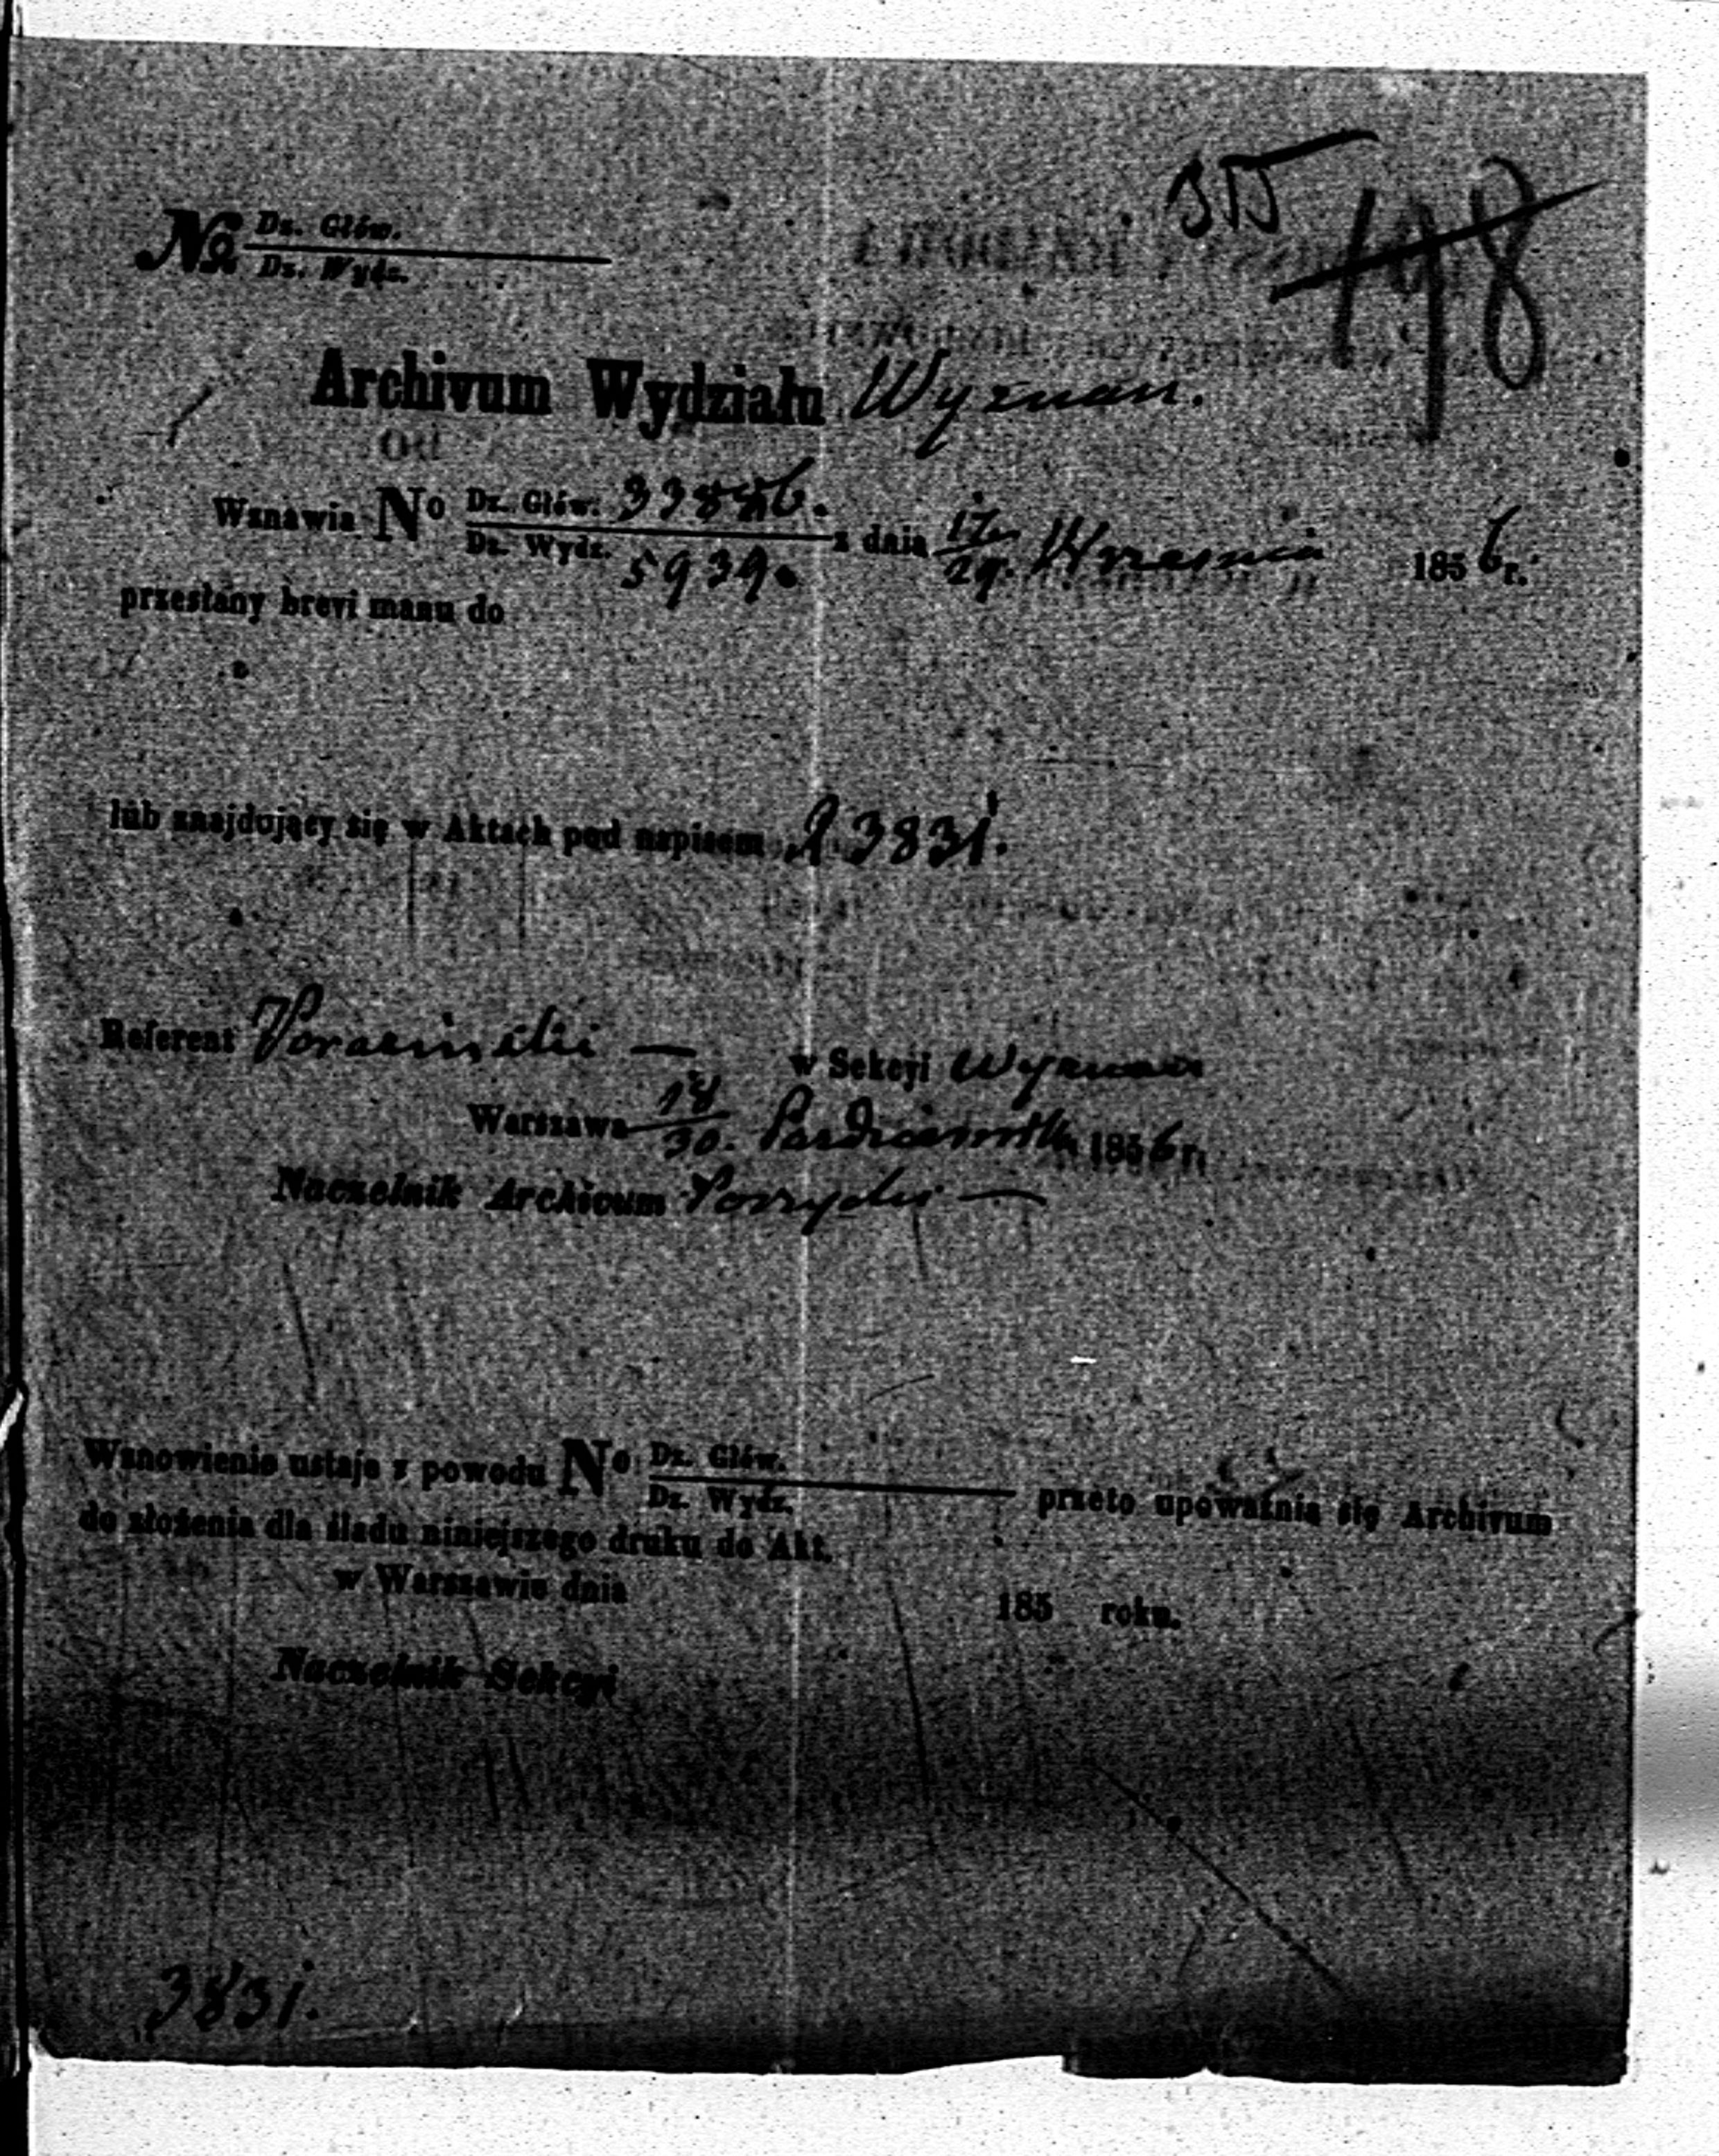 198
№ Dz. Głów.
Dz. Wydz.
Archivum Wydziału Wyznań.
Wznawia No Dz. Głów. z dnia 17/29. Września 1856 r.
Dz. Wydz. 5939.
przesłany brevi manu do
lub znajdujący się w Aktach pod napisem 3831.
Referent w Sekcyi Wyznań
Warszawa 18/30. Października 1856 r.
Naczelnik Archivum
Wznowienie ustaje z powodu No Dz. Głów. przeto upoważnia się Archivum
Dz. Wydz.
do złożenia dla śladu niniejszego druku do Akt.
w Warszawie dnia 185 roku.
Naczelnik Sekcyi
3831.